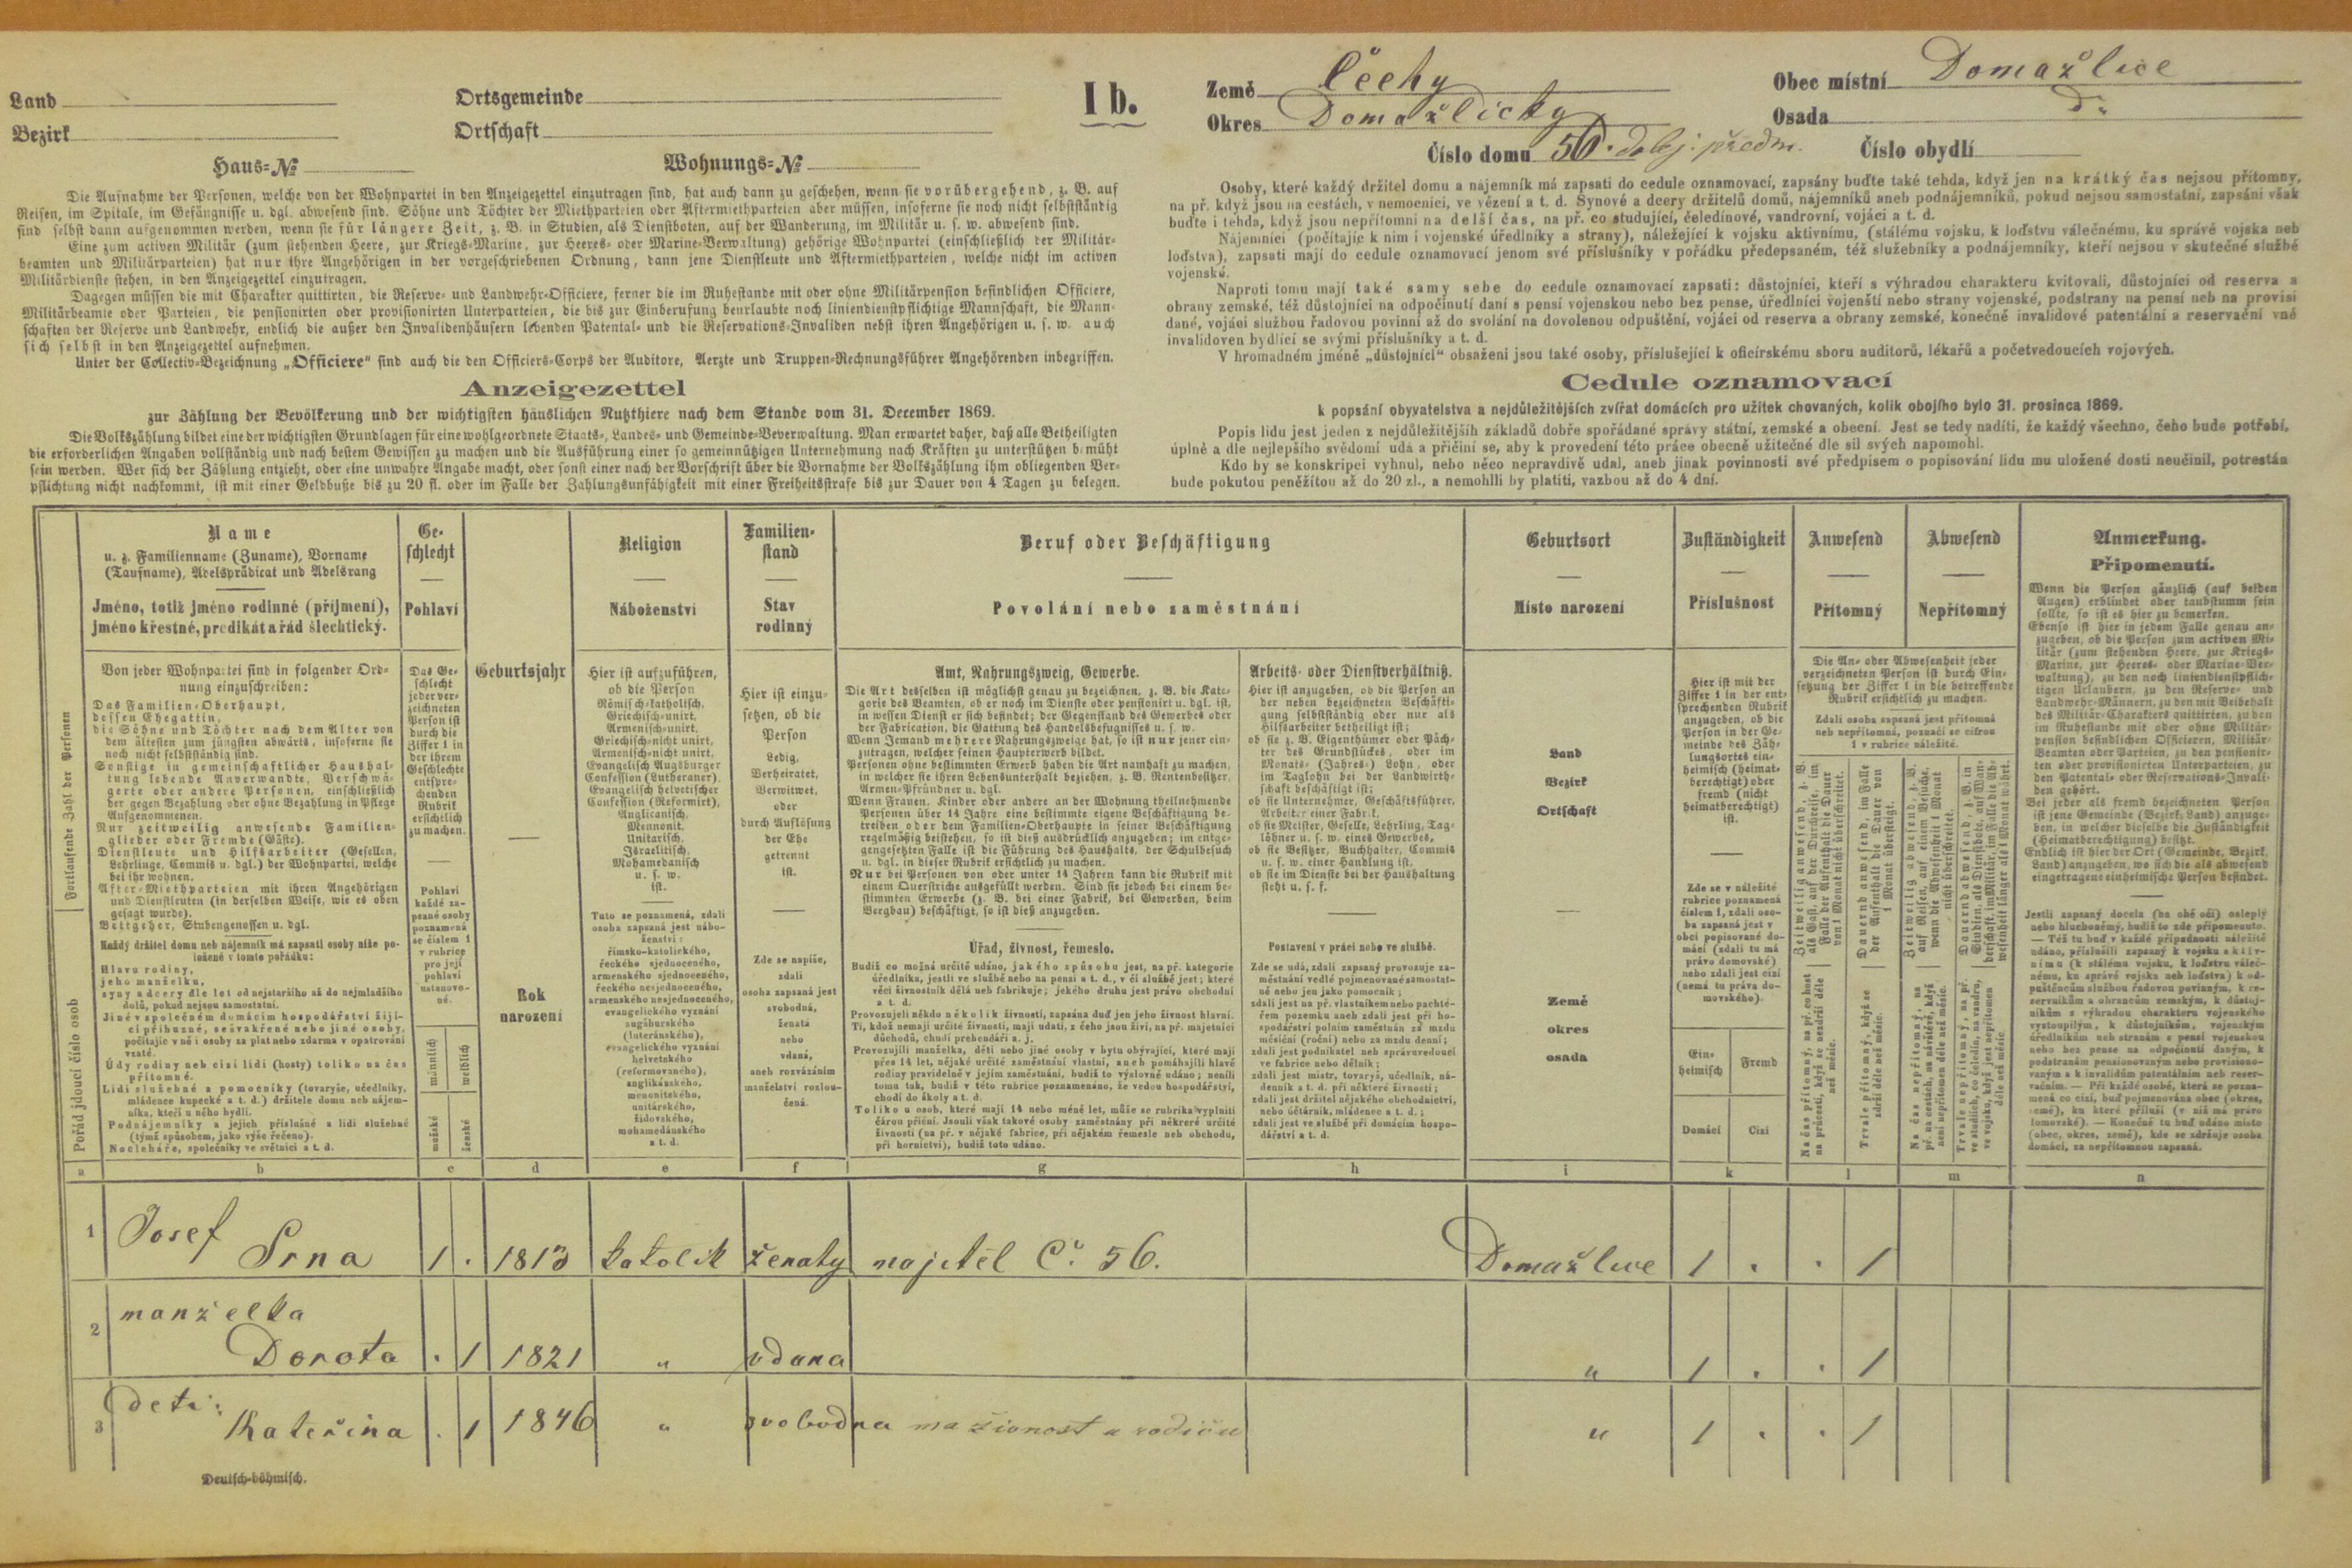 Land
Ortsgemeinde
I b.
Země Čechy
Obec místní Domažlice
Bezirk
Ortschaft
Okres Domažlický
Osada dº
Haus-№
Wohnungs-№
Číslo domu 56. dolej. předm.
Číslo obydlí
Die Aufnahme der Personen, welche von der Wohnpartei in den Anzeigezettel einzutragen sind, hat auch dann zu geschehen, wenn sie vorübergehend, z. B. auf
Reisen, im Spitale, im Gefängnisse u. dgl. abwesend sind. Söhne und Töchter der Miethparteien oder Aftermiethparteien aber müssen, insoferne sie noch nicht selbstständig
sind selbst dann aufgenommen werden, wenn sie für längere Zeit, z. B. in Studien, als Dienstboten, auf der Wanderung, im Militär u. s. w. abwesend sind.
Eine zum activen Militär (zum stehenden Heere, zur Kriegs-Marine, zur Heeres- oder Marine-Verwaltung) gehörige Wohnpartei (einschließlich der Militär-
beamten und Militärparteien) hat nur ihre Angehörigen in der vorgeschriebenen Ordnung, dann jene Dienstleute und Aftermiethparteien, welche nicht im activen
Militärdienste stehen, in den Anzeigezettel einzutragen.
Dagegen müssen die mit Charakter quittirten, die Reserve- und Landwehr-Officiere, ferner die im Ruhestande mit oder ohne Militärpension befindlichen Officiere,
Militärbeamte oder Parteien, die pensionirten oder provisionirten Unterparteien, die bis zur Einberufung beurlaubte noch liniendienstpflichtige Mannschaft, die Mann-
schaften der Reserve und Landwehr, endlich die außer den Invalidenhäusern lebenden Patental- und die Reservations-Invaliden nebst ihren Angehörigen u. s. w. auch
sich selbst in den Anzeigezettel aufnehmen.
Unter der Collectiv-Bezeichnung „Officiere“ sind auch die den Officiers-Corps der Auditore, Aerzte und Truppen-Rechnungsführer Angehörenden inbegriffen.
Anzeigezettel
zur Zählung der Bevölkerung und der wichtigsten häuslichen Nutzthiere nach dem Stande vom 31. December 1869.
Die Volkszählung bildet eine der wichtigsten Grundlagen für eine wohlgeordnete Staats-, Landes- und Gemeinde-Beverwaltung. Man erwartet daher, daß alle Betheiligten
die erforderlichen Angaben vollständig und nach bestem Gewissen zu machen und die Ausführung einer so gemeinnützigen Unternehmung nach Kräften zu unterstützen bemüht
sein werden. Wer sich der Zählung entzieht, oder eine unwahre Angabe macht, oder sonst einer nach der Vorschrift über die Vornahme der Volkszählung ihm obliegenden Ver-
pflichtung nicht nachkommt, ist mit einer Geldbuße bis zu 20 fl. oder im Falle der Zahlungsunfähigkeit mit einer Freiheitsstrafe bis zur Dauer von 4 Tagen zu belegen.
Osoby, které každý držitel domu a nájemník má zapsati do cedule oznamovací, zapsány buďte také tehda, když jen na krátký čas nejsou přítomny,
na př. když jsou na cestách, v nemocnici, ve vězení a t. d. Synové a dcery držitelů domů, nájemníků aneb podnájemníků, pokud nejsou samostatní, zapsáni však
buďte i tehda, když jsou nepřítomni na delší čas, na př. co studující, čeledínové, vandrovní, vojáci a t. d.
Nájemníci (počítajíc k nim i vojenské úředlníky a strany), náležející k vojsku aktivnímu, (stálému vojsku, k loďstvu válečnému, ku správě vojska neb
loďstva), zapsati mají do cedule oznamovací jenom své příslušníky v pořádku předepsaném, též služebníky a podnájemníky, kteří nejsou v skutečné službě
vojenské.
Naproti tomu mají také samy sebe do cedule oznamovací zapsati: důstojníci, kteří s výhradou charakteru kvitovali, důstojníci od reserva a
obrany zemské, též důstojníci na odpočinutí daní s pensí vojenskou nebo bez pense, úředlníci vojenští nebo strany vojenské, podstrany na pensí neb na provisi
dané, vojáci službou řadovou povinní až do svolání na dovolenou odpuštění, vojáci od reserva a obrany zemské, konečně invalidové patentální a reservační vně
invalidoven bydlící se svými příslušníky a t. d.
V hromadném jméně „důstojníci“ obsaženi jsou také osoby, příslušející k oficírskému sboru auditorů, lékařů a početvedoucích vojových.
Cedule oznamovací
k popsání obyvatelstva a nejdůležitějších zvířat domácích pro užitek chovaných, kolik obojího bylo 31. prosince 1869.
Popis lidu jest jeden z nejdůležitějších základů dobře spořádané správy státní, zemské a obecní. Jest se tedy nadíti, že každý všechno, čeho bude potřebí,
úplně a dle nejlepšího svědomí udá a přičiní se, aby k provedení této práce obecně užitečné dle sil svých napomohl.
Kdo by se konskripci vyhnul, nebo něco nepravdivě udal, aneb jinak povinnosti své předpisem o popisování lidu mu uložené dosti neučinil, potrestán
bude pokutou peněžitou až do 20 zl., a nemohlli by platiti, vazbou až do 4 dní.
Fortlaufende Zahl der Personen
Pořád jdoucí číslo osob
Name
u. z. Familienname (Zuname), Vorname
(Taufname), Adelsprädicat und Adelsrang
Jméno, totiž jméno rodinné (příjmení),
jméno křestné, predikát a řád šlechtický.
Von jeder Wohnpartei sind in folgender Ord-
nung einzuschreiben:
Das Familien-Oberhaupt,
dessen Ehegattin,
die Söhne und Töchter nach dem Alter von
dem ältesten zum jüngsten abwärts, insoferne sie
noch nicht selbstständig sind.
Sonstige in gemeinschaftlicher Haushal-
tung lebende Anverwandte, Verschwä-
gerte oder andere Personen, einschließlich
der gegen Bezahlung oder ohne Bezahlung in Pflege
Aufgenommenen.
Nur zeitweilig anwesende Familien-
glieder oder Fremde (Gäste).
Dienstleute und Hilfsarbeiter (Gesellen,
Lehrlinge, Commis u. dgl.) der Wohnpartei, welche
bei ihr wohnen.
After-Miethparteien mit ihren Angehörigen
und Dienstleuten (in derselben Weise, wie es oben
gesagt wurde).
Bettgeher, Stubengenossen u. dgl.
Každý držitel domu neb nájemník má zapsati osoby níže po-
ložené v tomto pořádku:
Hlavu rodiny,
jeho manželku,
syny a dcery dle let od nejstaršího až do nejmladšího
dolů, pokud nejsou samostatní.
Jiné v společném domácím hospodářství žijí-
cí příbuzné, sešvakřené nebo jiné osoby,
počítajíc v ně i osoby za plat nebo zdarma v opatrování
vzaté.
Údy rodiny neb cizí lidi (hosty) toliko na čas
přítomné.
Lidi služebné a pomocníky (tovaryše, učedlníky,
mládence kupecké a t. d.) držitele domu neb nájem-
níka, kteří u něho bydlí.
Podnájemníky a jejich příslušné a lidi služebné
(týmž spůsobem, jako výše řečeno).
Nocleháře, společníky ve světnici a t. d.
Ge-
schlecht
Pohlaví
Das Ge-
schlecht
jeder ver-
zeichneten
Person ist
durch die
Ziffer 1 in
der ihrem
Geschlechte
entspre-
chenden
Rubrik
ersichtlich
zu machen.
Pohlaví
každé za-
psané osoby
poznamená
se číslem 1
v rubrice
pro její
pohlaví
ustanove-
né.
männlich
weiblich
mužské
ženské
Geburtsjahr
Rok
narození
Religion
Náboženství
Hier ist aufzuführen,
ob die Person
Römisch-katholisch,
Griechisch-unirt,
Armenisch-unirt,
Griechisch-nicht unirt,
Armenisch-nicht unirt,
Evangelisch Augsburger
Confession (Lutheraner),
Evangelisch helvetischer
Confession (Reformirt),
Anglicanisch,
Mennonit,
Unitarisch,
Israelitisch,
Mohamedanisch
u. s. w.
ist.
Tuto se poznamená, zdali
osoba zapsaná jest nábo-
ženství:
římsko-katolického,
řeckého sjednoceného,
armenského sjednoceného,
řeckého nesjednoceného,
armenského nesjednoceného,
evangelického vyznání
augšburského
(luteránského),
evangelického vyznání
helvetského
(reformovaného),
anglikánského,
menonitského,
unitárského,
židovského,
mohamedánského
a t. d.
Familien-
stand
Stav
rodinný
Hier ist einzu-
setzen, ob die
Person
Ledig,
Verheiratet,
Verwitwet,
oder
durch Auflösung
der Ehe
getrennt
ist.
Zde se napíše,
zdali
osoba zapsaná jest
svobodná,
ženatá
nebo
vdaná,
aneb rozvázáním
manželství rozlou-
čená.
Beruf oder Beschäftigung
Povolání nebo zaměstnání
Amt, Nahrungszweig, Gewerbe.
Die Art desselben ist möglichst genau zu bezeichnen, z. B. die Kate-
gorie des Beamten, ob er noch im Dienste oder pensionirt u. dgl. ist,
in wessen Dienst er sich befindet; der Gegenstand des Gewerbes oder
der Fabrication, die Gattung des Handelsbefugnisses u. s. w.
Wenn Jemand mehrere Nahrungszweige hat, so ist nur jener ein-
zutragen, welcher seinen Haupterwerb bildet.
Personen ohne bestimmten Erwerb haben die Art namhaft zu machen,
in welcher sie ihren Lebensunterhalt beziehen, z. B. Rentenbesitzer,
Armen-Pfründner u. dgl.
Wenn Frauen, Kinder oder andere an der Wohnung theilnehmende
Personen über 14 Jahre eine bestimmte eigene Beschäftigung be-
treiben oder dem Familien-Oberhaupte in seiner Beschäftigung
regelmäßig beistehen, so ist dieß ausdrücklich anzugeben; im entge-
gengesetzten Falle ist die Führung des Haushalts, der Schulbesuch
u. dgl. in dieser Rubrik ersichtlich zu machen.
Nur bei Personen von oder unter 14 Jahren kann die Rubrik mit
einem Querstriche ausgefüllt werden. Sind sie jedoch bei einem be-
stimmten Erwerbe (z. B. bei einer Fabrik, bei Gewerben, beim
Bergbau) beschäftigt, so ist dieß anzugeben.
Úřad, živnost, řemeslo.
Budiž co možná určitě udáno, jakého způsobu jest, na př. kategorie
úředlníka, jestli ve službě nebo na pensi a t. d., v čí službě jest; které
věci živnostník dělá neb fabrikuje; jakého druhu jest právo obchodní
a t. d.
Provozujeli někdo několik živností, zapsána buď jen jeho živnost hlavní.
Ti, kdož nemají určité živnosti, mají udati, z čeho jsou živi, na př. majetníci
důchodů, chudí prebendáři a. j.
Provozujíli manželka, děti nebo jiné osoby v bytu obývající, které mají
přes 14 let, nějaké určité zaměstnání vlastní, aneb pomáhajíli hlavě
rodiny pravidelně v jejím zaměstnání, budiž to výslovně udáno; neníli
tomu tak, budiž v této rubrice poznamenáno, že vedou hospodářství,
chodí do školy a t. d.
Toliko u osob, které mají 14 nebo méně let, může se rubrika vyplniti
čárou příční. Jsouli však takové osoby zaměstnány při některé určité
živnosti (na př. v nějaké fabrice, při nějakém řemesle neb obchodu,
při hornictví), budiž toto udáno.
Arbeits- oder Dienstverhältniß.
Hier ist anzugeben, ob die Person an
der neben bezeichneten Beschäfti-
gung selbstständig oder nur als
Hilfsarbeiter betheiligt ist;
ob sie z. B. Eigenthümer oder Päch-
ter des Grundstückes, oder im
Monats- (Jahres-) Lohn, oder
im Taglohn bei der Landwirth-
schaft beschäftigt ist;
ob sie Unternehmer, Geschäftsführer,
Arbeiter einer Fabrik,
ob sie Meister, Geselle, Lehrling, Tag-
löhner u. s. w. eines Gewerbes,
ob sie Besitzer, Buchhalter, Commis
u. s. w. einer Handlung ist,
ob sie im Dienste bei der Haushaltung
steht u. s. f.
Postavení v práci nebo ve službě.
Zde se udá, zdali zapsaný provozuje za-
městnání vedlé pojmenované samostat-
ně nebo jen jako pomocník;
zdali jest na př. vlastníkem nebo pachté-
řem pozemku aneb zdali jest při ho-
spodářství polním zaměstnán za mzdu
měsíční (roční) nebo za mzdu denní;
zdali jest podnikatel neb správuvedoucí
ve fabrice nebo dělník;
zdali jest mistr, tovaryš, učedlník, ná-
denník a t. d. při některé živnosti;
zdali jest držitel nějakého obchodnictví,
nebo účtárník, mládenec a t. d.;
zdali jest ve službě při domácím hospo-
dářství a t. d.
Geburtsort
Místo narození
Land
Bezirk
Ortschaft
Země
okres
osada
Zuständigkeit
Příslušnost
Hier ist mit der
Ziffer 1 in der ent-
sprechenden Rubrik
anzugeben, ob die
Person in der Ge-
meinde des Zäh-
lungsortes ein-
heimisch (heimat-
berechtigt) oder
fremd (nicht
heimatberechtigt)
ist.
Zde se v náležité
rubrice poznamená
číslem 1, zdali oso-
ba zapsaná jest v
obci popisované do-
mácí (zdali tu má
právo domovské)
nebo zdali jest cizí
(nemá tu práva do-
movského).
Ein-
heimisch
Fremd
Domácí
Cizí
Anwesend
Přítomný
Abwesend
Nepřítomný
Die An- oder Abwesenheit jeder
verzeichneten Person ist durch Ein-
setzung der Ziffer 1 in die betreffende
Rubrik ersichtlich zu machen.
Zdali osoba zapsaná jest přítomná
neb nepřítomná, poznačí se cifrou
1 v rubrice náležité.
Zeitweilig anwesend, z. B.
als Gast, auf der Durchreise, im
Falle der Aufenthalt die Dauer
von 1 Monat nicht überschreitet.
Dauernd anwesend, im Falle
der Aufenthalt die Dauer von
1 Monat übersteigt.
Zeitweilig abwesend, z. B.
auf Reisen, auf einem Besuche,
wenn die Abwesenheit 1 Monat
nicht überschreitet.
Dauernd abwesend, z. B. in
Studien, als Dienstbote, auf Wan-
derschaft, im Militär, im Falle die Ab-
wesenheit länger als 1 Monat währt.
Na čas přítomný, na př. co host
na průcestí, když se nezdrží déle
než měsíc.
Trvale přítomný, když se
zdrží déle než měsíc.
Na čas nepřítomný, na
př. na cestách, na návštěvě, když
není nepřítomen déle než měsíc.
Trvale nepřítomný, na př.
ve studiích, co čeledín, na vandru,
ve vojsku, když jest nepřítomen
déle než měsíc.
Anmerkung.
Připomenutí.
Wenn die Person gänzlich (auf beiden
Augen) erblindet oder taubstumm sein
sollte, so ist es hier zu bemerken.
Ebenso ist hier in jedem Falle genau an-
zugeben, ob die Person zum activen Mi-
litär (zum stehenden Heere, zur Kriegs-
Marine, zur Heeres- oder Marine-Ver-
waltung), zu den noch liniendienstpflich-
tigen Urlaubern, zu den Reserve- und
Landwehr-Männern, zu den mit Beibehalt
des Militär-Charakters quittirten, zu den
im Ruhestande mit oder ohne Militär-
pension befindlichen Officieren, Militär-
Beamten oder Parteien, zu den pensionir-
ten oder provisionirten Unterparteien, zu
den Patental- oder Reservations-Invali-
den gehört.
Bei jeder als fremd bezeichneten Person
ist jene Gemeinde (Bezirk, Land) anzuge-
ben, in welcher dieselbe die Zuständigkeit
(Heimatberechtigung) besitzt.
Endlich ist hier der Ort (Gemeinde, Bezirk,
Land) anzugeben, wo sich die als abwesend
eingetragene einheimische Person befindet.
Jestli zapsaný docela (na obě oči) osleplý
nebo hluchoněmý, budiž to zde připomenuto.
— Též tu buď v každé případnosti náležitě
udáno, příslušíli zapsaný k vojsku aktiv-
nímu (k stálému vojsku, k loďstvu váleč-
nému, ku správě vojska neb loďstva) k od-
puštěncům službou řadovou povinným, k re-
servníkům a obrancům zemským, k důstoj-
níkům s výhradou charakteru vojenského
vystoupilým, k důstojníkům, vojenským
úředlníkům neb stranám s pensí vojenskou
nebo bez pense na odpočinutí daným, k
podstranám pensionovaným nebo provisiono-
vaným a k invalidům patentálním neb reser-
vačním. — Při každé osobě, která se pozna-
mená co cizí, buď pojmenována obec (okres,
země), ku které přísluší (v níž má právo
domovské). — Konečně tu buď udáno místo
(obec, okres, země), kde se zdržuje osoba
domácí, za nepřítomnou zapsaná.
a b c d e f g h i k l m n
1 Josef
Srna 1 . 1813 katolík ženatý majetel Č. 56. Domažlice 1 . . 1
2 manželka
Dorota . 1 1821 „ vdaná „ 1 . . 1
3 děti:
Kateřina . 1 1846 „ svobodna ma živnost u rodičů „ 1 . . 1
Deutsch-böhmisch.